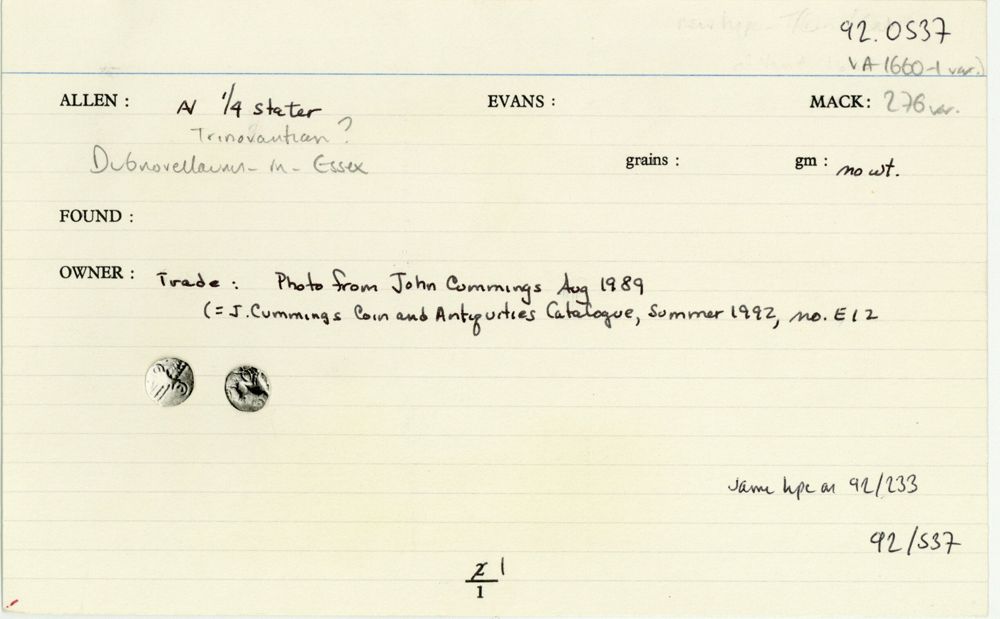 92.0537
VA 1660-1 var.)
ALLEN : AV 1/4 stater EVANS : MACK: 276 var.
Trinovantian ?
Dubnovellaunus-in-Essex grains : gm : no wt.
FOUND :
OWNER : Trade : Photo from John Cummings Aug 1989
(= J. Cummings Coin and Antiquities Catalogue, Summer 1992, no. E12
same type as 92/233
92/537
2 1
1